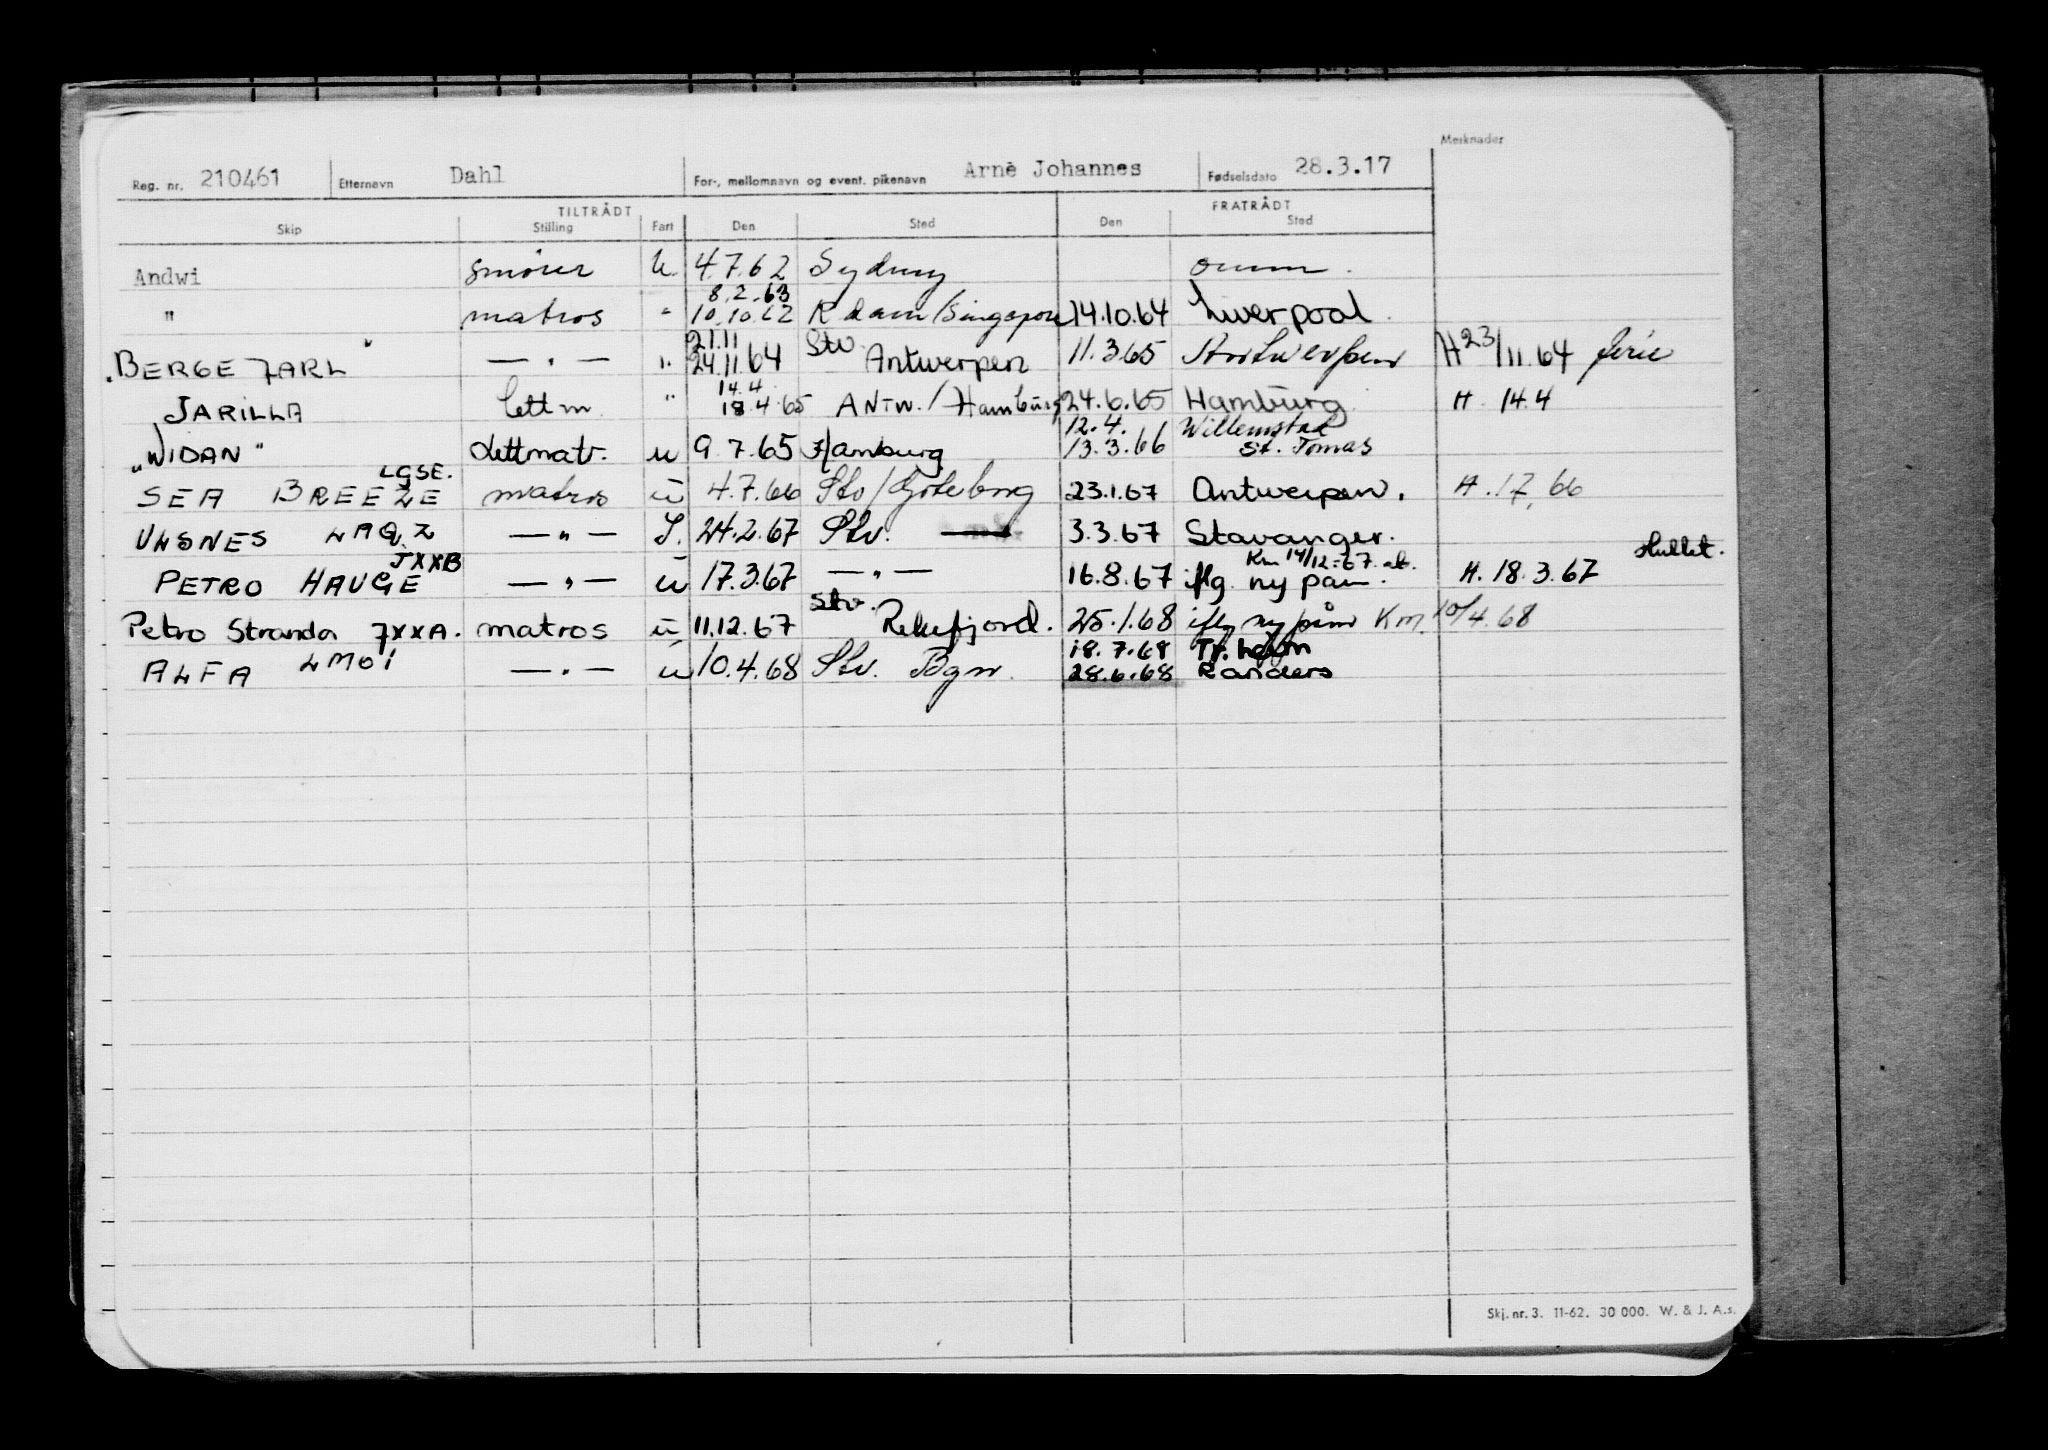 Merknader
Reg. nr. 210461 Etternavn Dahl For-, mellomnavn og event. pikenavn Arne Johannes Fødselsdato 28.3.17
TILTRÅDT FRATRÅDT
Skip Stilling Fart Den Sted Den Sted
Andwi smører U. 4.7.62 Sydney omm.
8.2.63
" matros " 10.10.62 R dam/Singapore 14.10.64 Liverpool.
21.11 Stv.
"BERGE JARL" — " — " 24.11.64 Antwerpen 11.3.65 Antwerpen H 23/11.64 ferie
14.4
JARILLA lettm. " 18.4.65 ANTW./Hamburg 24.6.65 Hamburg. H. 14.4
12.4. Willemstad
"WIDAN" Lettmatr. u 9.7.65 Hamburg 13.3.66 St. Tomas
LGSE.
SEA BREEZE matros u 4.7.66 Stv/Göteborg 23.1.67 Antwerpen. H. 1.7.66
ULSNES LAQZ — " — I. 24.2.67 Stv. 3.3.67 Stavanger.
JXXB Km 14/12-67. at. sluttet.
PETRO HAUGE — " — u 17.3.67 — " — 16.8.67 iflg. ny påm. H. 18.3.67
Stv.
Petro Stranda JXXA. matros u 11.12.67 Rekefjord. 25.1.68 iflg ny påm Km. 10/4.68
18.7.68 Tr.heim
ALFA LMOI — " — u 10.4.68 Stv. Bgn. 28.6.68 Randers
Skj. nr. 3. 11-62. 30 000. W. & J. A.s.